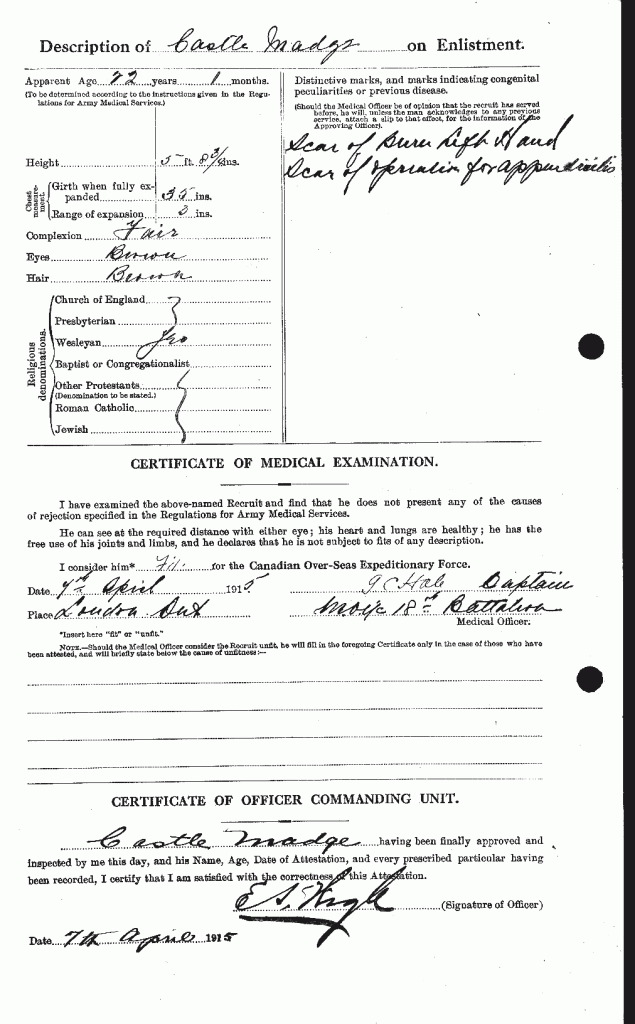 Description of Castle Madge on Enlistment.
Apparent Age 22 years 1 months.
(To be determined according to the instructions given in the Regulations for Army Medical Services.)
Height 5 ft. 8 3/4 ins.
Chest measurement.
Girth when fully expanded 35 ins.
Range of expansion 3 ins.
Complexion Fair
Eyes Brown
Hair Brown
Religious denominations.
Church of England
Presbyterian
Wesleyan Yes
Baptist or Congregationalist
Other Protestants
(Denomination to be stated.)
Roman Catholic
Jewish
Distinctive marks, and marks indicating congenital
peculiarities or previous disease.
(Should the Medical Officer be of opinion that the recruit has served
before, he will, unless the man acknowledges to any previous
service, attach a slip to that effect, for the information of the
Approving Officer).
Scar of Burn Left Hand
Scar of operation for appendicitis
CERTIFICATE OF MEDICAL EXAMINATION.
I have examined the above-named Recruit and find that he does not present any of the causes
of rejection specified in the Regulations for Army Medical Services.
He can see at the required distance with either eye; his heart and lungs are healthy; he has the
free use of his joints and limbs, and he declares that he is not subject to fits of any description.
I consider him* Fit for the Canadian Over-Seas Expeditionary Force.
Date 7th April 1915 G C Hale Captain
Place London Ont 18th Battalion
Medical Officer.
*Insert here "fit" or "unfit."
NOTE.—Should the Medical Officer consider the Recruit unfit, he will fill in the foregoing Certificate only in the case of those who have
been attested, and will briefly state below the cause of unfitness:—
CERTIFICATE OF OFFICER COMMANDING UNIT.
Castle Madge having been finally approved and
inspected by me this day, and his Name, Age, Date of Attestation, and every prescribed particular having
been recorded, I certify that I am satisfied with the correctness of this Attestation.
E S. (Signature of Officer)
Date 7th April 1915